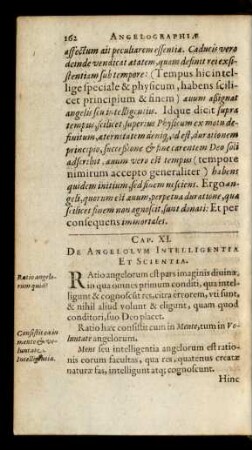 262 ANGELOGRAPHIÆ
affectum ait peculiarem essentiæ. Caducei vero
deinde vendicat ætatem, quam definit rei exi-
stentiam sub tempore: (Tempus hic intel-
lige speciale & physicum, habens scili-
cet principium & finem) ævum assignat
angelis seu intelligentiis. Idque dicit supra
tempus, scilicet superius Physicum ex motu de-
finitum, æternitatem denique, id est, durationem
principio, successione & fine carentem Deo soli
adscribit. ævum vero est tempus (tempore
nimirum accepto generaliter) habens
quidem initium, sed finem nesciens. Ergo an-
geli, quorum est ævum, perpetua duratione, quæ
scilicet finem non agnoscit, sunt donati: Et per
consequens immortales.
CAP. XI.
DE ANGELORVM INTELLIGENTIA
ET SCIENTIA.
Ratio angelo-
rum quid?
RAtio angelorum est pars imaginis divinæ,
in qua omnes primum conditi, qua intel-
ligunt & cognoscunt res, citra errorem, vti sunt,
& nihil aliud volunt & eligunt, quam quod
conditori, suo Deo placet.
Consistit enim
mente & vo-
luntate.
Intelligentia.
Ratio hæc consistit cum in Mente, tum in Vo-
luntate angelorum.
Mens seu intelligentia angelorum est ratio-
nis eorum facultas, qua res, quatenus creatæ
naturæ fas, intelligunt atque cognoscunt.
Hinc